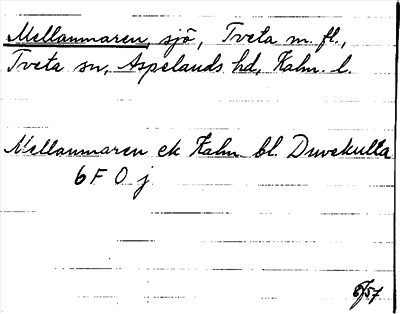 Mellanmaren, sjö, Tveta m. fl.,
Tveta sn, Aspelands hd, Kalm. l.
Mellanmaren ek Kalm bl. Duvekulla
6 F 0 j